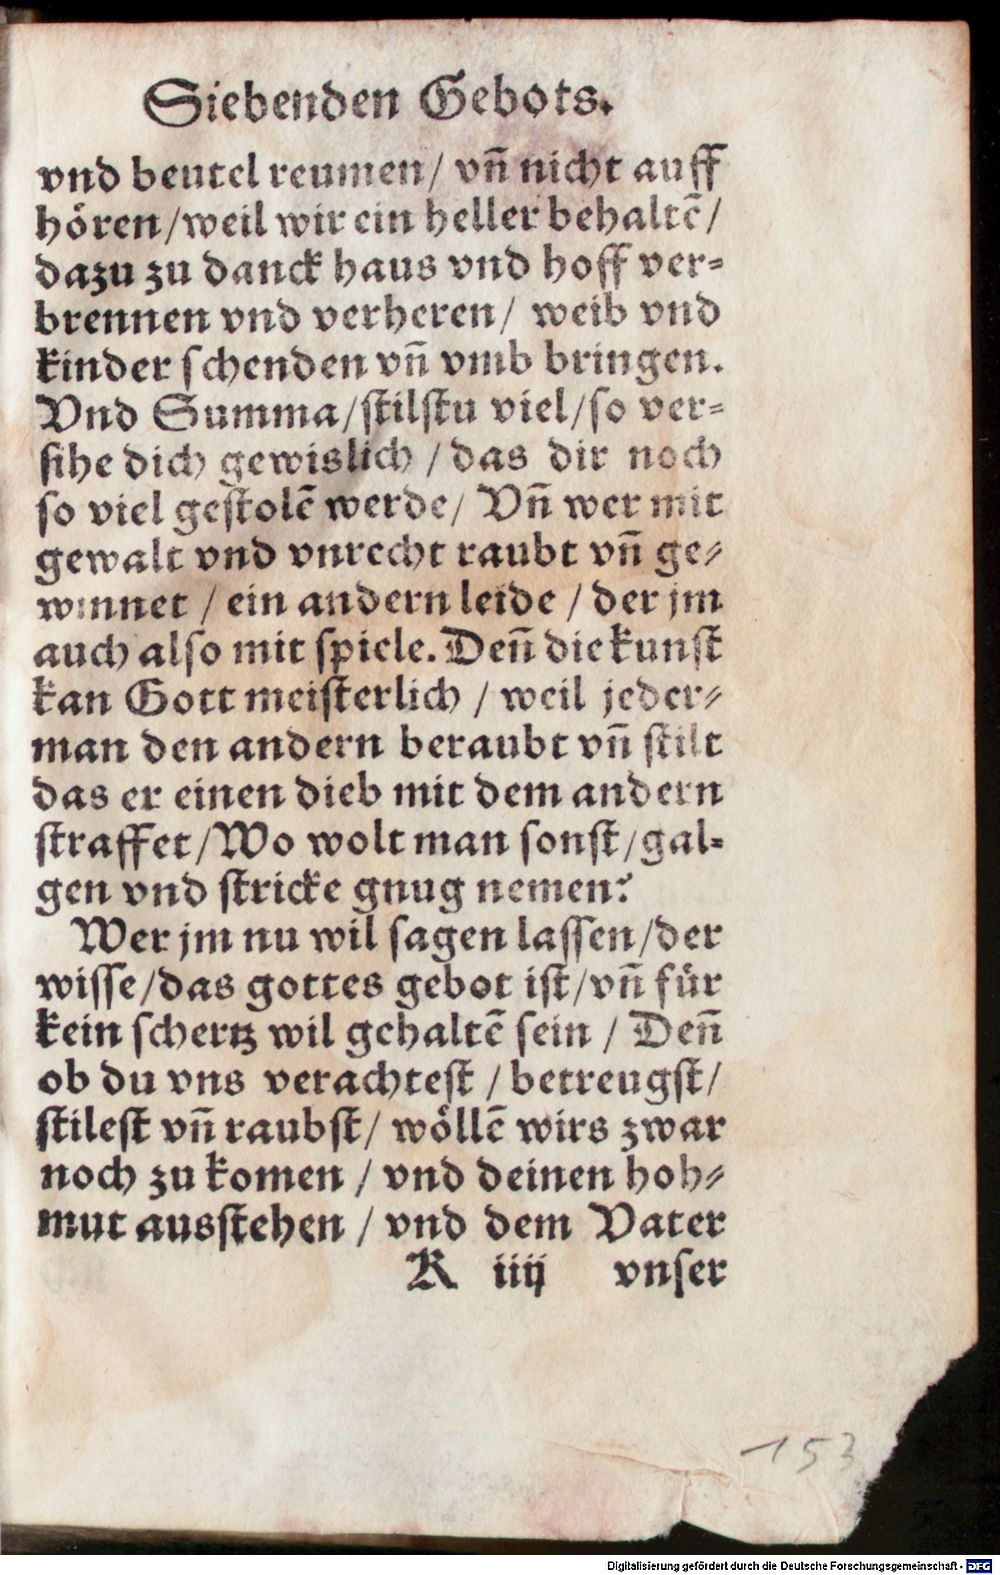 Siebenden Gebots.
vnd beutel reumen/ vn̄ nicht auff
hören/weil wir ein heller behaltē/
dazu zu danck haus vnd hoff ver-
brennen vnd verheren/ weib vnd
kinder schenden vn̄ vmb bringen.
Vnd Summa/stilstu viel/so ver-
sihe dich gewislich / das dir noch
so viel gestolē werde/ Vn̄ wer mit
gewalt vnd vnrecht raubt vn̄ ge-
winnet / ein andern leide / der jm
auch also mit spiele. Den̄ die kunst
kan Gott meisterlich / weil jeder-
man den andern beraubt vn̄ stilt
das er einen dieb mit dem andern
straffet/Wo wolt man sonst/gal-
gen vnd stricke gnug nemen?
Wer jm nu wil sagen lassen/der
wisse/das gottes gebot ist/vn̄ für
kein schertz wil gehaltē sein / Den̄
ob du vns verachtest / betreugst/
stilest vn̄ raubst/ wöllē wirs zwar
noch zu komen / vnd deinen hoh-
mut ausstehen / vnd dem Vater
K iiij vnser
153
Digitalisierung gefördert durch die Deutsche Forschungsgemeinschaft - DFG